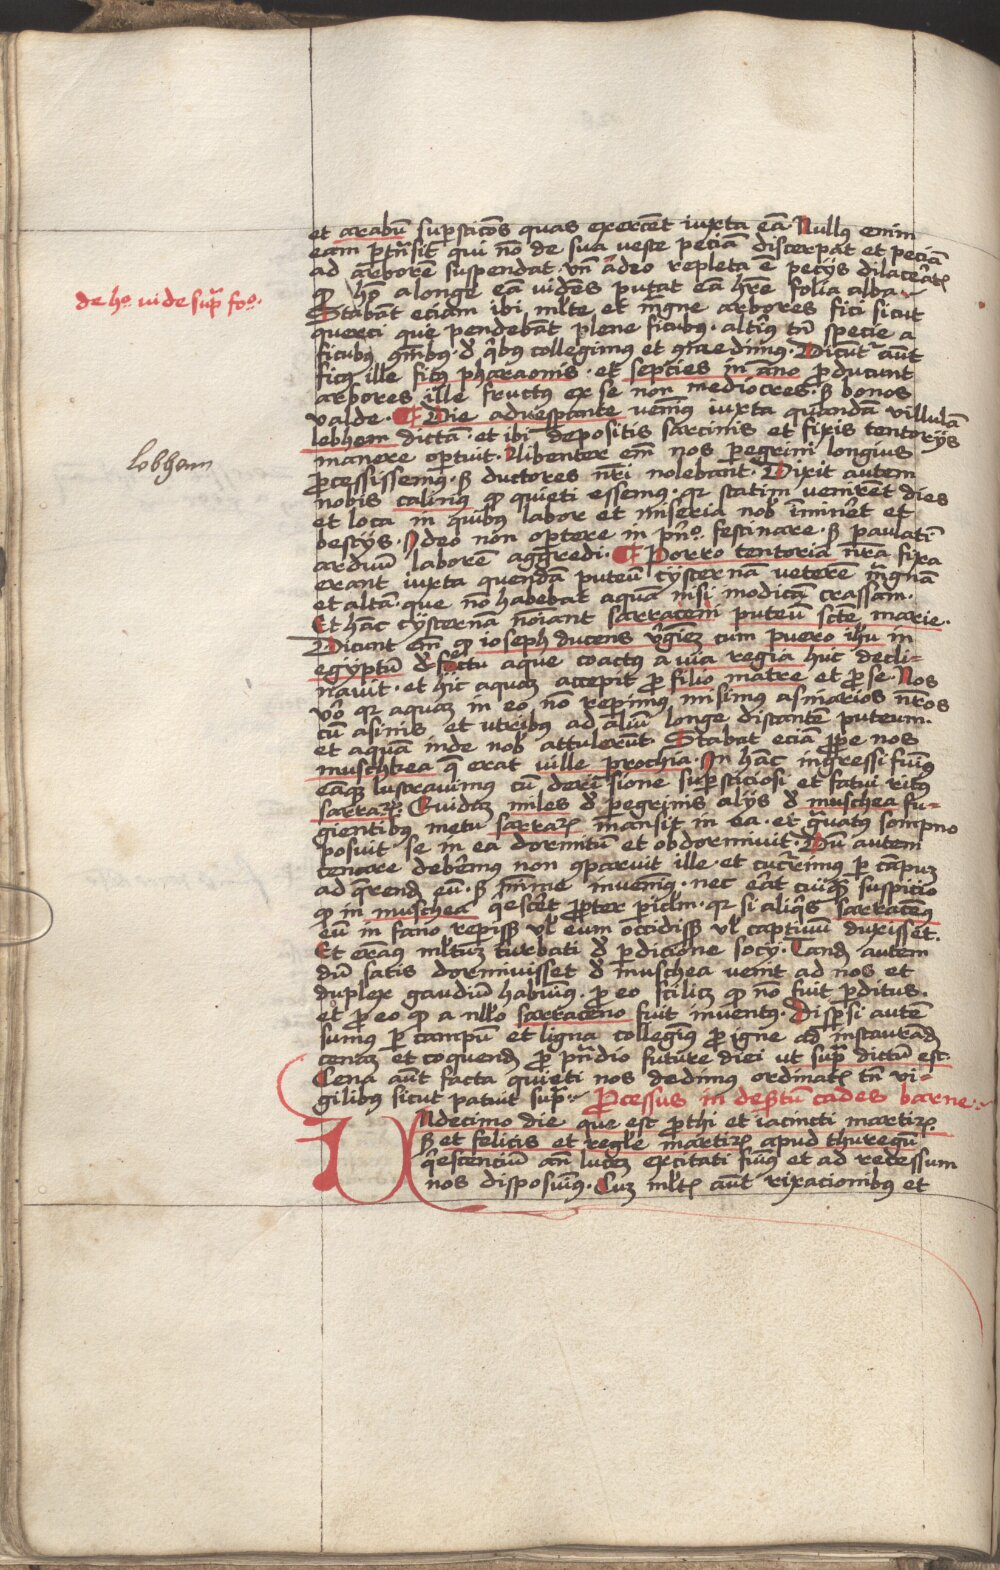 et arabū suꝑsticōs quas exercēt iuxta eā. Nullꝰ enim
eam ꝑtrāsit qui nō de sua veste peciā discerpat et peciā
ad arborē suspendat. vn̄ adeo repleta ē pecijs dilaceratꝭ
ꝙ hō a longe eā vidēs putat eā hr̄e folia alba.
de hº. vide supͣ foº.
Stabāt eciam ibi ml̄te et magne arbores fici sicut
querci que pendebāt plene ficubꝰ. altiꝰ tn̄ specie a
ficubꝰ om̄ibꝰ. de qͥbꝰ collegimꝰ et comedimꝰ. Dicūtr aūt
ficꝰ ille ficꝰ pharaonis. et septies in āno ꝓducunt
arbores ille fructꝰ ex se non mediocres. sꝫ bonos
valde. ¶ Die advesꝑante venimꝰ iuxta quandā villulā
lebhem dictā. et ibi depositis sarcinis et fixis tentorijs
lobhem
manere oportuit. Libenter em̄ nos ꝑegrini longius
ꝓcessissemꝰ. sꝫ ductores nr̄i nolebant. Dixit autem
nobis calinꝰ ꝙ quieti essemꝰ. qꝛ statim venirēt dies
et loca in quibꝰ labor et miseria nob̄ īminēt et
bestijs. Ideo non oportere in pͥnº. festinare. sꝫ paulatī
arduū laborē aggredi. ¶ Porro tentoria nr̄a fixa
erant iuxta quendā puteū cysternā veterē magnā
et altā. que nō habebat aquā nisi modicā crassam.
Et hāc cysternā noīant sarraceni puteū scte marie.
Dicunt em̄ ꝙ ioseph ducens virginē cum puero ihū in
egyptū defectu aque coactꝰ a via regia huc decli-
navit. et hic aquaꝫ accepit ꝓ filio matre et ꝓ se. Nos
vº qꝛ aquaꝫ in eo nō reperimꝰ misimus asinarios nr̄os
cū asinis et utribꝰ ad aliū longe distantē puteum.
et aquā inde nob̄ attulerūt. Stabat eciā ꝓpe nos
muschea q̄ erat ville ꝓrochia. In hāc ingressi fuimꝰ
eāqꝫ lustravimus cū derisione suꝑsticiosi et fatui ritꝰ
sarraꝝ. Quidaꝫ miles de ꝑegrinis alijs de muschea fu-
gientibꝰ metu sarraꝝ mansit in ea. et gͣvatꝰ sompno
posuit se in ea dormitū et obdormivit. Dū autem
cenare debēmus non cōparuit ille. et cucurrimus ꝑ cāpuꝫ
ad querendū eū. sꝫ mīme invenimꝰ. nec erat cuiqꝫ suspicio
ꝙ in muschea qͥescēt ꝓpter ꝑiclm̄. qꝛ si aliqͥs sarracenꝰ
eū in fano reꝑisꝫ vl̄ eum occidisꝫ vl̄ captivū duxisset.
Et eramꝰ ml̄tuꝫ turbati de ꝑdicione socij. Tandē autem
dū satis dormivisset de muschea venit ad nos et
duplex gaudiū habuimꝰ. ꝓ eo scilicꝫ ꝙ nō fuit ꝑditus.
et ꝓ eo ꝙ a nl̄lo sarraceno fuit inventꝰ. Disꝑsi autē
sumus ꝑ campū et ligna collegimꝰ ꝓ igne ad instaurandā
cenaꝫ et coquendū ꝓ pͣndio future diei ut supͣ dictū est.
Cena aūt facta quieti nos dedimus ordinatꝭ tn̄ vi-
gilibus sicut patuit supͣ. Ꝓcessus in desertū cades barne.
Undecimo die que est ꝓthi et iacincti martirꝝ
sꝫ et felicis et regle martirꝝ apud thuregū
qͥescentiū an̄ lucē excitati fuimꝰ et ad recessum
nos disposuimꝰ. Cuꝫ ml̄tꝭ aūt rixacionibꝰ et